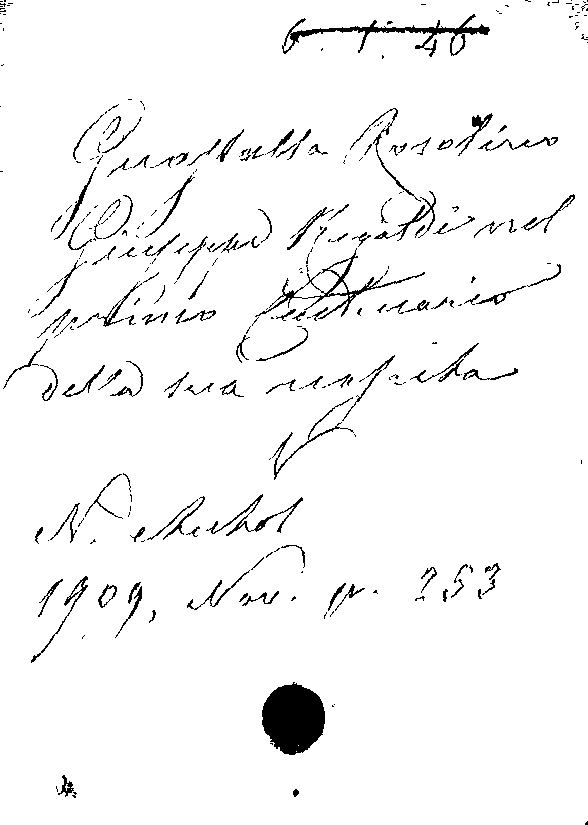 6. 1. 46
Guastalla Rosolino
Giuseppe Regaldi nel
primo Centenario
della sua nascita
N. Archol
1909, Nov. p. 253